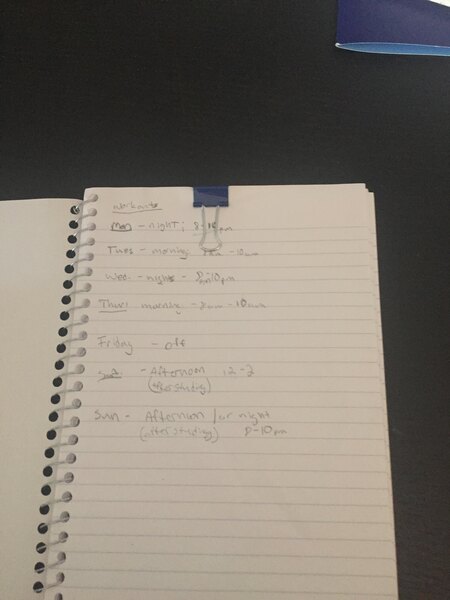 Workouts
Mon - night: 8-10pm
Tues - morning - 10am
Wed. - night - 8-10pm
Thur: morning - 8am - 10am
Friday - off
Sat. - Afternoon 12-2
(after studying)
Sun - Afternoon / or night
(after studying) 8-10pm